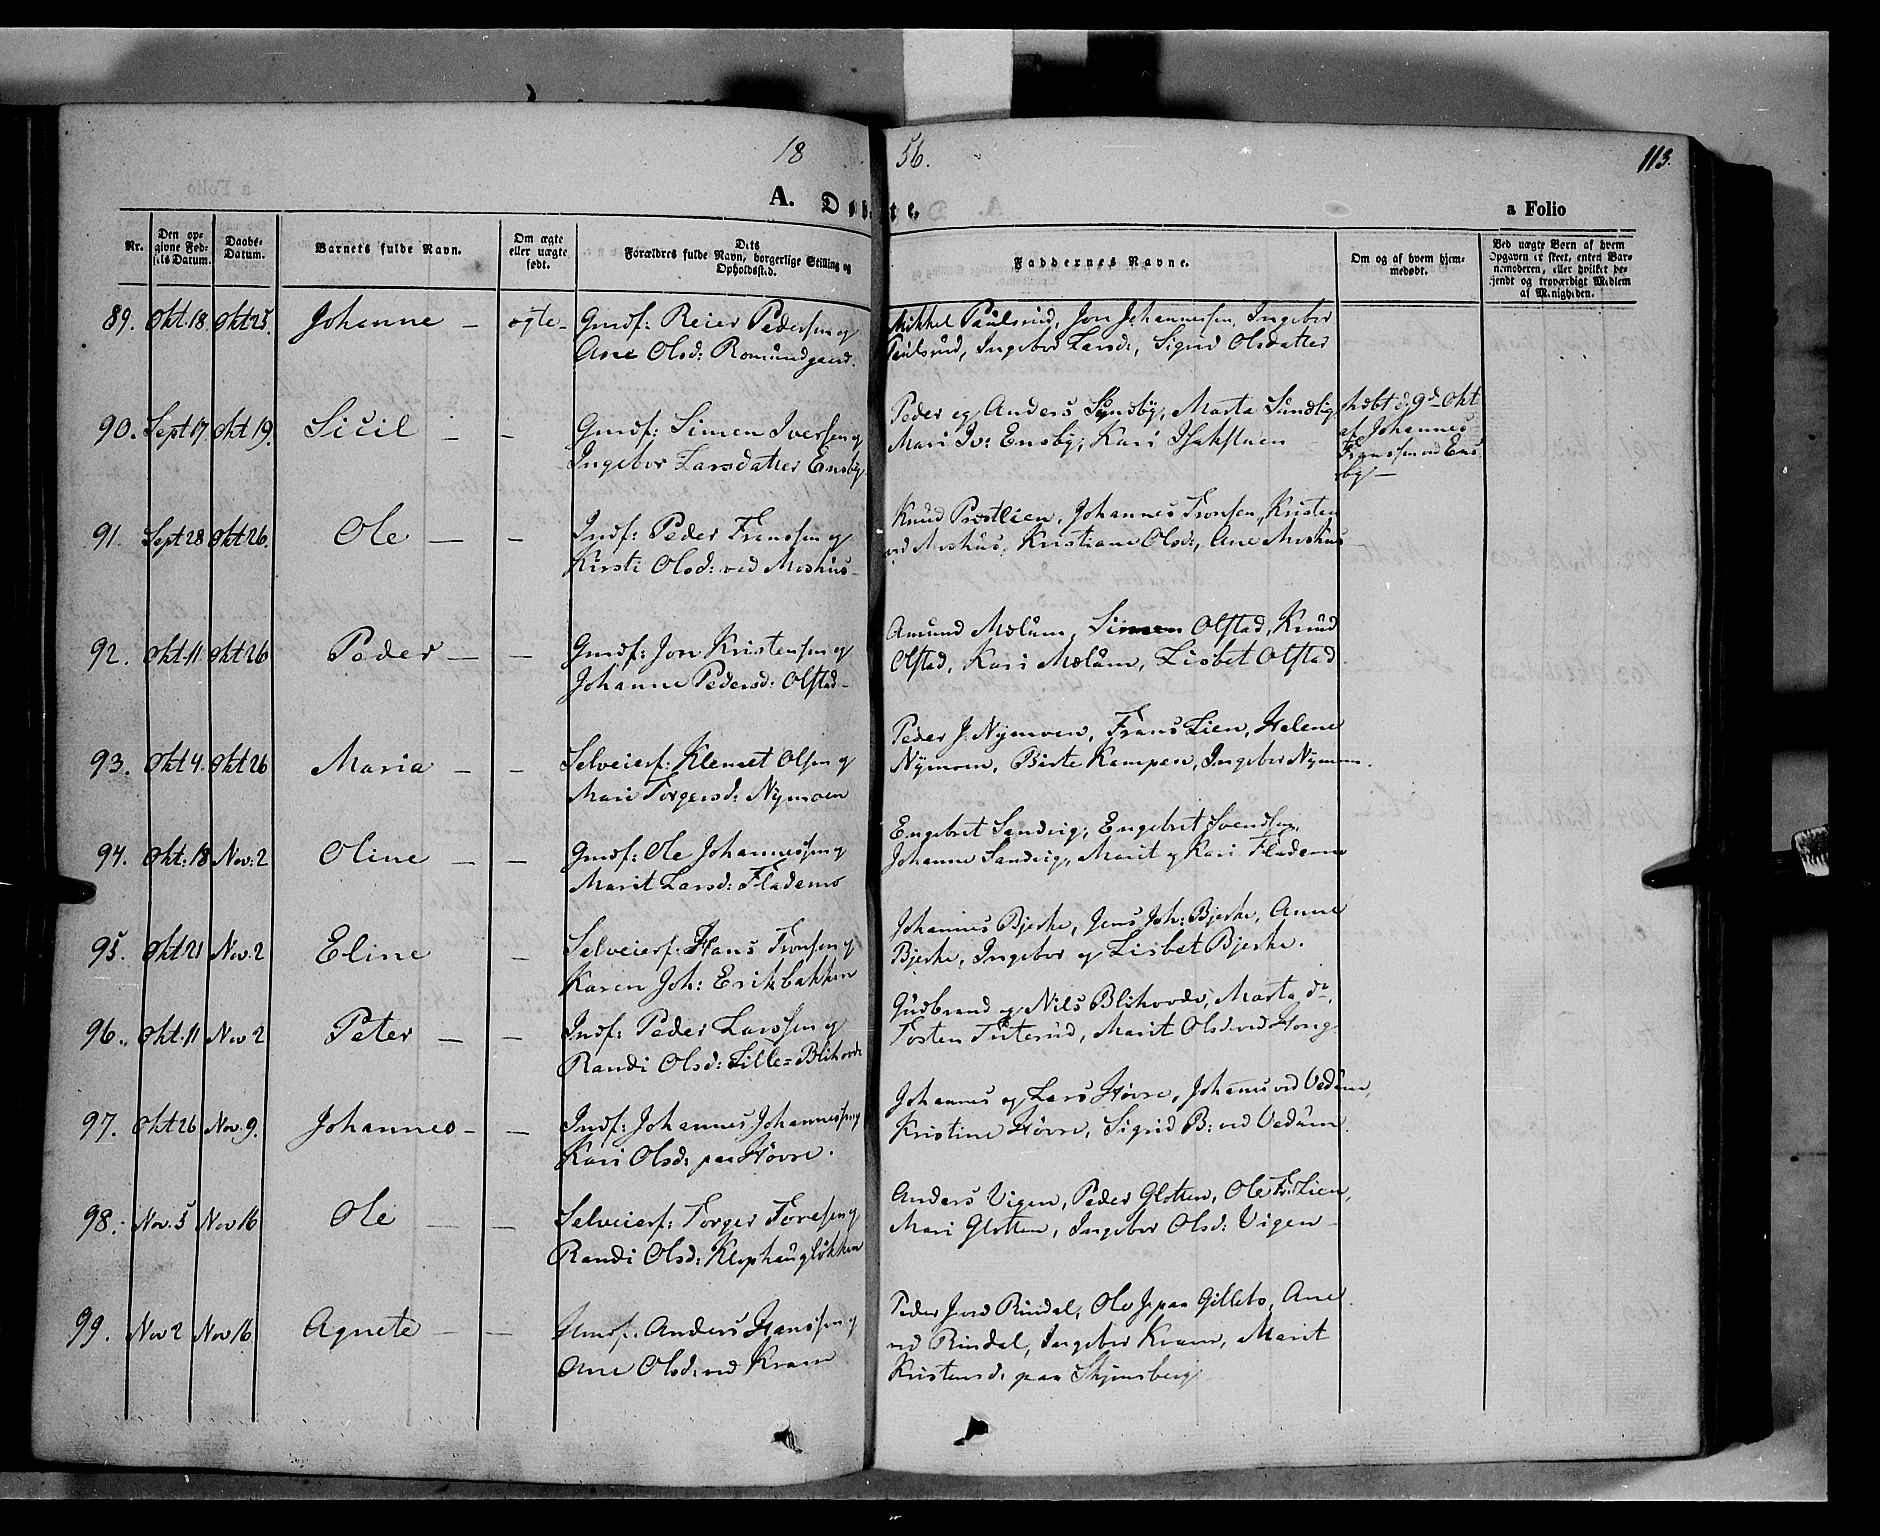 18 56. 113.
A. Døbte. a Folio
Nr. Den opgivne Fødselsdatum. Daabs-Datum. Barnets fulde Navn. Om ægte eller uægte født. Dets Forældres fulde Navn, borgerlige Stilling og Opholdssted. Faddernes Navne. Om og af hvem hjemmedøbt. Ved uægte Børn af hvem Opgaven er skeet, enten Barnemoderen, eller hvilket bekjendt og troværdigt Medlem af Menigheden.
89. Okt. 18 Okt 25. Johanne – ægte – Gmdf: Reier Pedersen og Mikkel Paulsrud, Jon Johannessen, Ingebor
Ane Olsd: Romundgaard. Paulsrud, Ingebor Larsd:, Sigrid Olsdatter
90. Sept 17 Okt 19. Sicil – – Gmdf: Simen Iversen og Peder og Anders Synsby, Marta Sundby hdbt d. 9d Okt
Ingebor Larsdatter Ensby Mari Iv: Ensby, Kari Isakstuen af Johannes
Fransen vd Ens
by –
91. Sept 28 Okt 26. Ole – – Indf: Peder Fransen og Knud Prestlien, Johannes Tronsen, Kristen
Kirsti Olsd: ved Moshus – ved Moshus, Kristiane Olsd:, Ane Moshus
92. Okt. 11 Okt 26 Peder – – Gmdf: Jon Kristensen og Amund Mælum, Simen Olstad, Knud
Johanne Pedersd: Olstad – Olstad, Kari Mælum, Lisbet Olstad
93. Okt 4. Okt 26 Maria – – Selveierf: Klemet Olsen og Peder J. Nymoen, Frans Lien, Helene
Mari Torgersd: Nymoen Nymoen, Birte Kampen, Ingebor Nymoen.
94. Okt: 18 Nov: 2 Oline – – Gmdf: Ole Johannessen og Engebret Sandvig, Engebret Svendsen,
Marit Larsd: Flademo Johanne Sandvig, Marit og Kari Flademo
95. Okt 21 Nov: 2 Eline – Selveierf: Hans Tronsen og Johannes Bjerke, Jens Joh: Bjerke, Anne
Karen Joh: Erikbakken Bjerke, Ingebor og Lisbet Bjerke.
96. Okt. 11 Nov 2 Peter – – Indf: Peder Larsen og Gudbrand og Nils Blihovde, Marta do,
Randi Olsd: Lille=Blihovde Tosten Tuterud, Marit Olsd vd Hong
97. Okt 26 Nov. 9. Johannes – – Indf: Johannes Johannessen og Johannes og Lars Høvre, Johannes ved Vedum,
Kari Olsd: paa Høvre. Kristine Høvre, Sigrid B: vd Vedum.
98. Nov. 5 Nov 16 Ole – – Selveierf: Torger Toresen og Anders Vigen, Peder Glotten, Ole Fr: Lien,
Randi Olsd: Klophaugløkken Mari Glotten, Ingebor Olsd: Vigen –
99. Nov 2 Nov 16 Agnete – – Hmdf: Anders Hanssen og Peder J vd Rindal, Ole J. paa Gillebo, Ane
Ane Olsd: vd Kram vd Rindal, Ingebor Kram, Marit
Kristensd: paa Skjønsberg